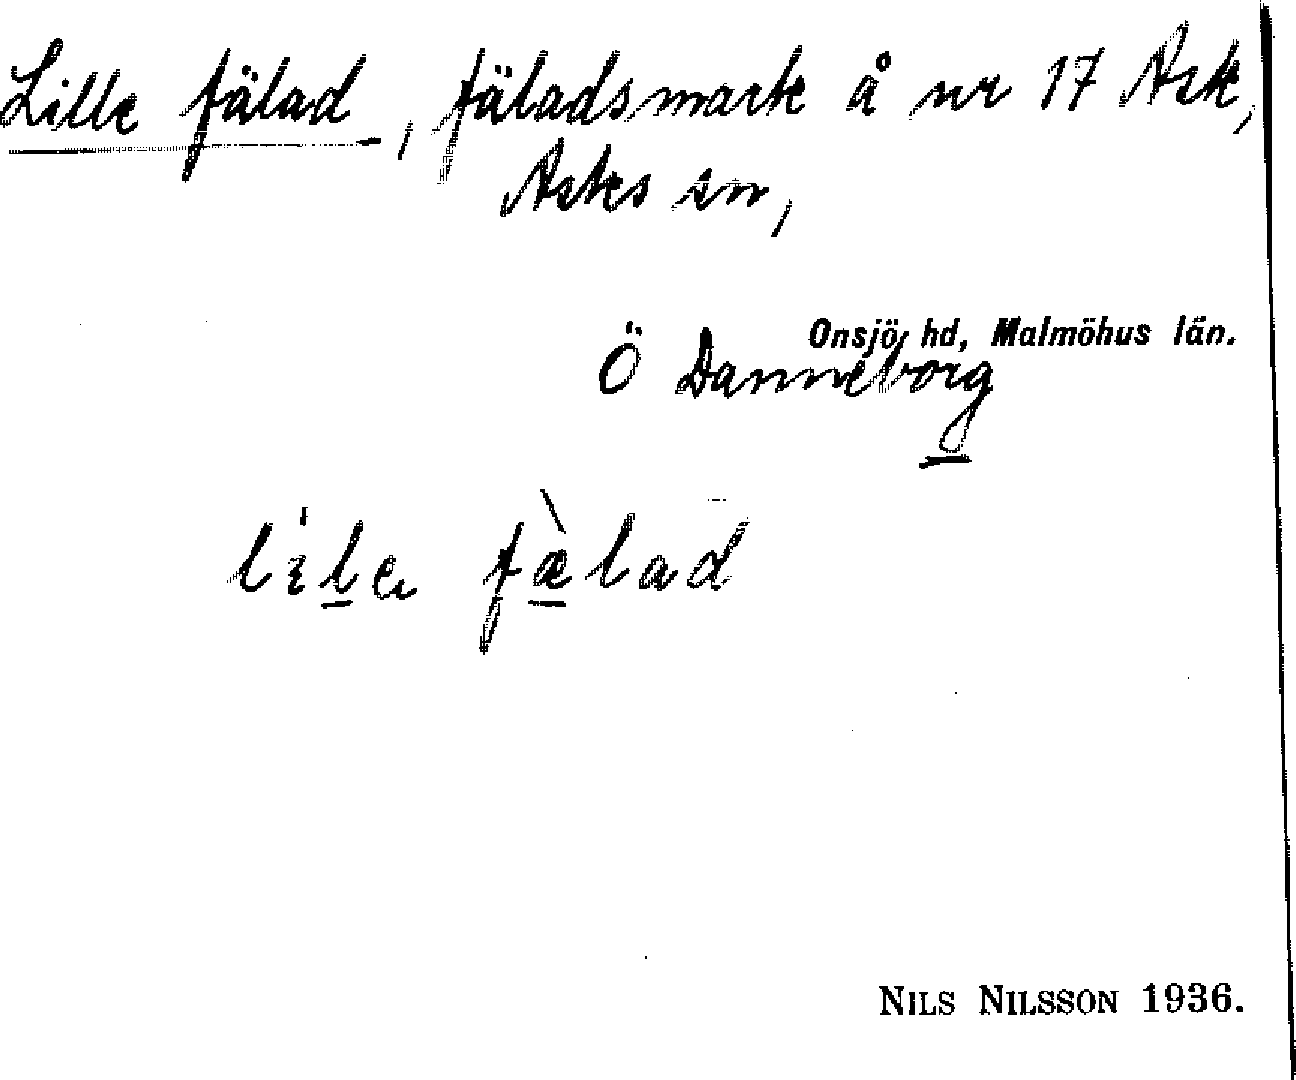 Lille fälad, fäladsmark å nr 17 Ask,
Asks sn,
Onsjö hd, Malmöhus län.
Ö Danneborg
lile fælad
NILS NILSSON 1936.